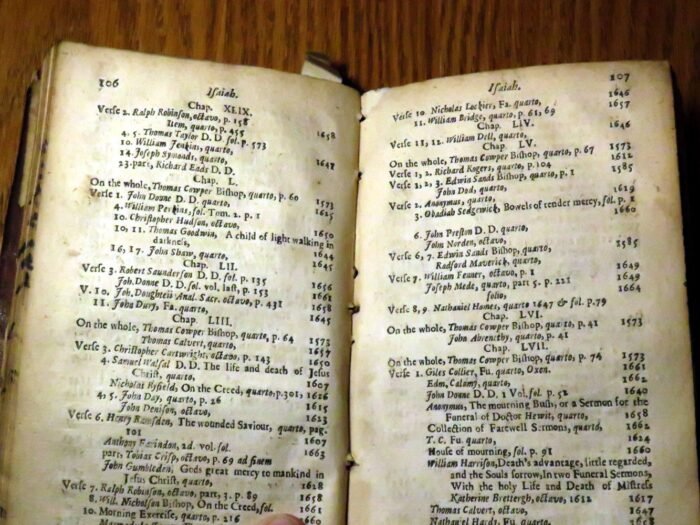 106
Isaiah.
Chap. XLIX.
Verse 2. Ralph Robinson, octavo, p. 158
Item, quarto, p. 455 1658
4. 5. Thomas Taylor D. D. fol. p. 573
10. William Jenkins, quarto,
14. Joseph Symonds, quarto,
23. part, Richard Eads D. D. 1641
Chap. L.
On the whole, Thomas Cowper Bishop, quarto, p. 60 1573
Verse 1. John Donne D. D. quarto, 1625
4. William Perkins, fol. Tom. 2. p. 1
10. Christopher Hudson, octavo, 1650
10, 11. Thomas Goodwin, A child of light walking in
darkness, 1644
16, 17. John Shaw, quarto, 1645
Chap. LII.
Verse 3. Robert Saunderson D. D. fol. p. 135 1656
Joh. Donne D. D. fol. vol. last, p. 153 1661
V. 10. Joh. Doughteii Anal. Sacr. octavo, p. 431 1658
11. John Dury, Fa. quarto, 1645
Chap. LIII.
On the whole, Thomas Cowper Bishop, quarto, p. 64 1573
Thomas Calvert, quarto, 1657
Verse 3. Christopher Cartwright, octavo, p. 143 1650
4. Samuel Walsal D. D. The life and death of Jesus
Christ, quarto, 1607
Nicholas Byfield, On the Creed, quarto, p. 301, 1626
4, 5. John Day, quarto, p. 26 1615
John Denison, octavo, 1613
Verse 6. Henry Ramsden, The wounded Saviour, quarto, pag.
101 1607
Anthony Farindon, 2d. vol. fol. 1663
part, Tobias Crisp, octavo, p. 69 ad finem
John Gumbleden, Gods great mercy to mankind in
Jesus Christ, quarto, 1628
Verse 7. Ralph Robinson, octavo, part, 3. p. 89 1658
8. Will. Nicholson Bishop, On the Creed, fol. 1661
10. Morning Exercise, quarto, p. 216 1660
Isaiah.
107
Verse 10. Nicholas Lockier, Fa. quarto, 1646
11. William Bridge, quarto, p. 61, 69 1657
Chap. LIV.
Verse 11, 12. William Dell, quarto, 1646
Chap. LV.
On the whole, Thomas Cowper Bishop, quarto, p. 67 1573
Verse 1, 2. Richard Rogers, quarto, p. 104 1612
Verse 1, 2, 3. Edwin Sands Bishop, quarto, p. 1 1585
John Dod, quarto,
Verse 2. Anonymus, quarto, 1619
3. Obadiah Sedgewick, Bowels of tender mercy, fol. p. 1
1660
6. John Preston D. D. quarto,
John Norden, octavo,
Verse 6, 7. Edwin Sands Bishop, quarto, 1585
Radford Maverick, quarto,
Verse 7. William Fenner, octavo, p. 1 1649
Joseph Mede, quarto, part 5. p. 221 1649
folio, 1664
Verse 8, 9. Nathaniel Homes, quarto 1647 & fol. p. 79
Chap. LVI.
On the whole, Thomas Cowper Bishop, quarto, p. 41 1573
John Abrenethy, quarto, p. 41
Chap. LVII.
On the whole, Thomas Cowper Bishop, quarto, p. 74 1573
Verse 1. Giles Collier, Fu. quarto, Oxon. 1661
Edm. Calamy, quarto, 1662
John Donne D. D. 1 Vol. fol. p. 52 1640
Anonymus, The mourning Bush, or a Sermon for the
Funeral of Doctor Hewit, quarto, 1658
Collection of Farewell Sermons, quarto, 1662
T. C. Fu. quarto, 1624
House of mourning, fol. p. 91 1660
William Harrison, Death's advantage, little regarded,
and the Souls sorrow, in two Funeral Sermons,
With the holy Life and Death of Mistress
Katherine Brettergh, octavo, 1612 1617
Thomas Calvert, octavo, 1647
Nathaniel Hardy, Fu. quarto, 1658